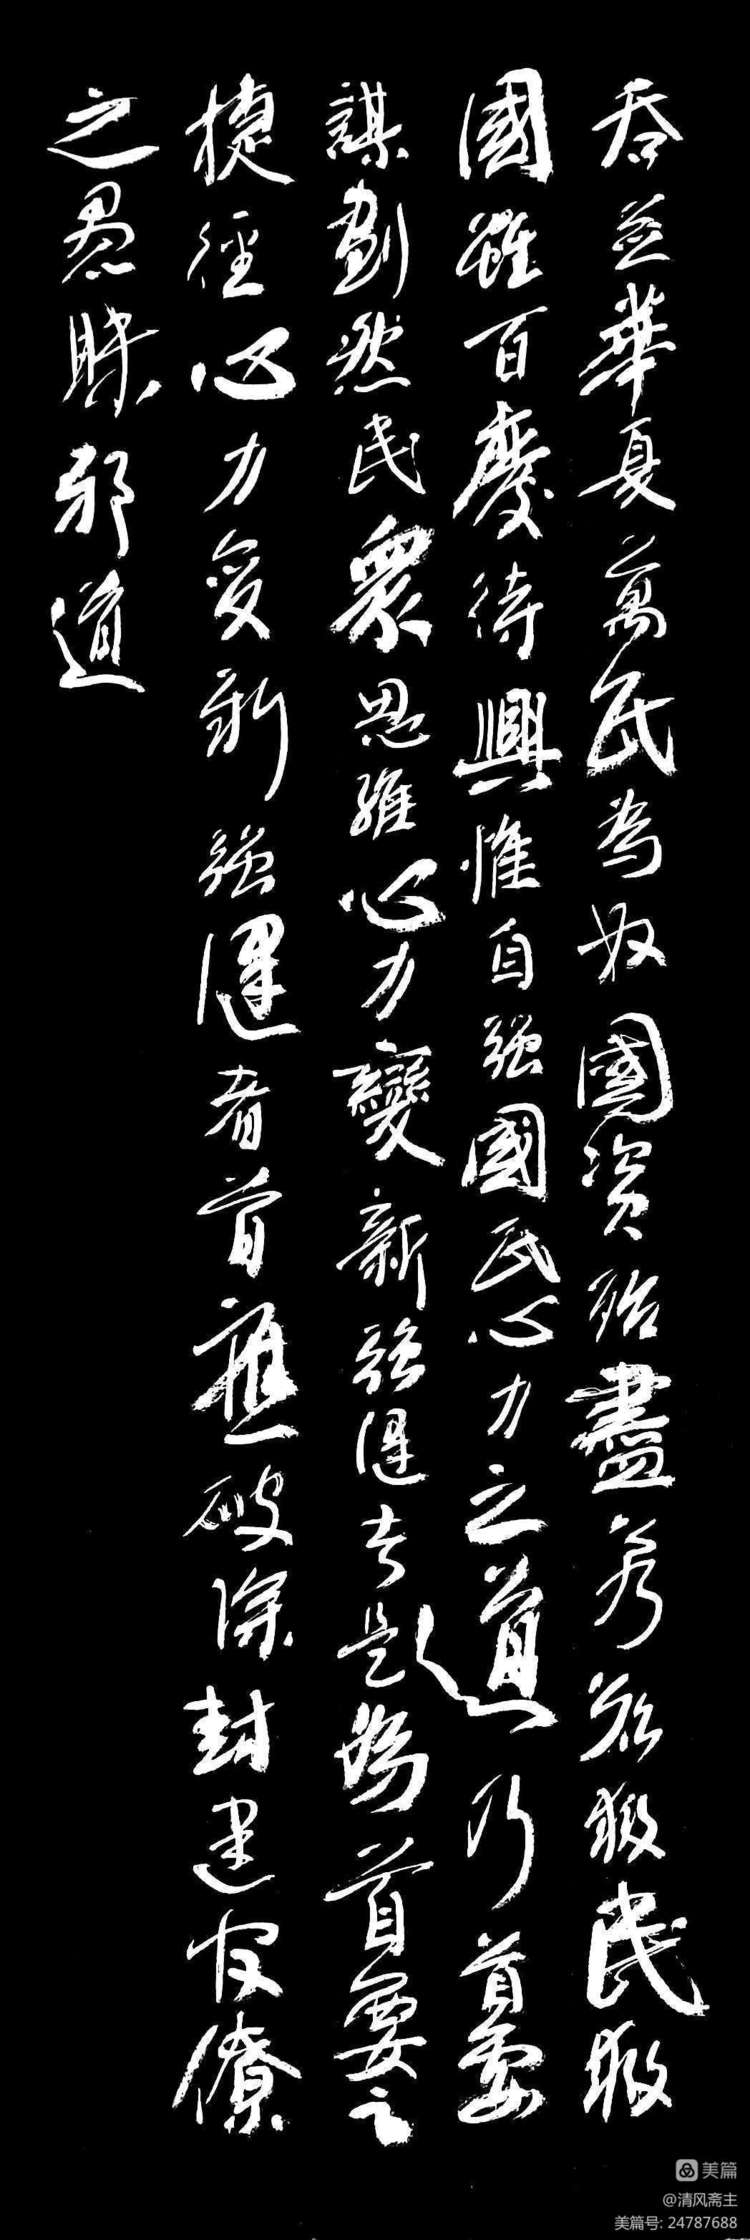 吞並華夏萬民為奴國資殆盡若欲救民救
國雖百廢待興惟自強國民心力之道乃首要
謀劃然民眾思維心力變新強健者是為首要之
捷徑心力變新強健者首應破除封建官僚
之愚昧邪道
美篇
@清风斋主
美篇号: 24787688